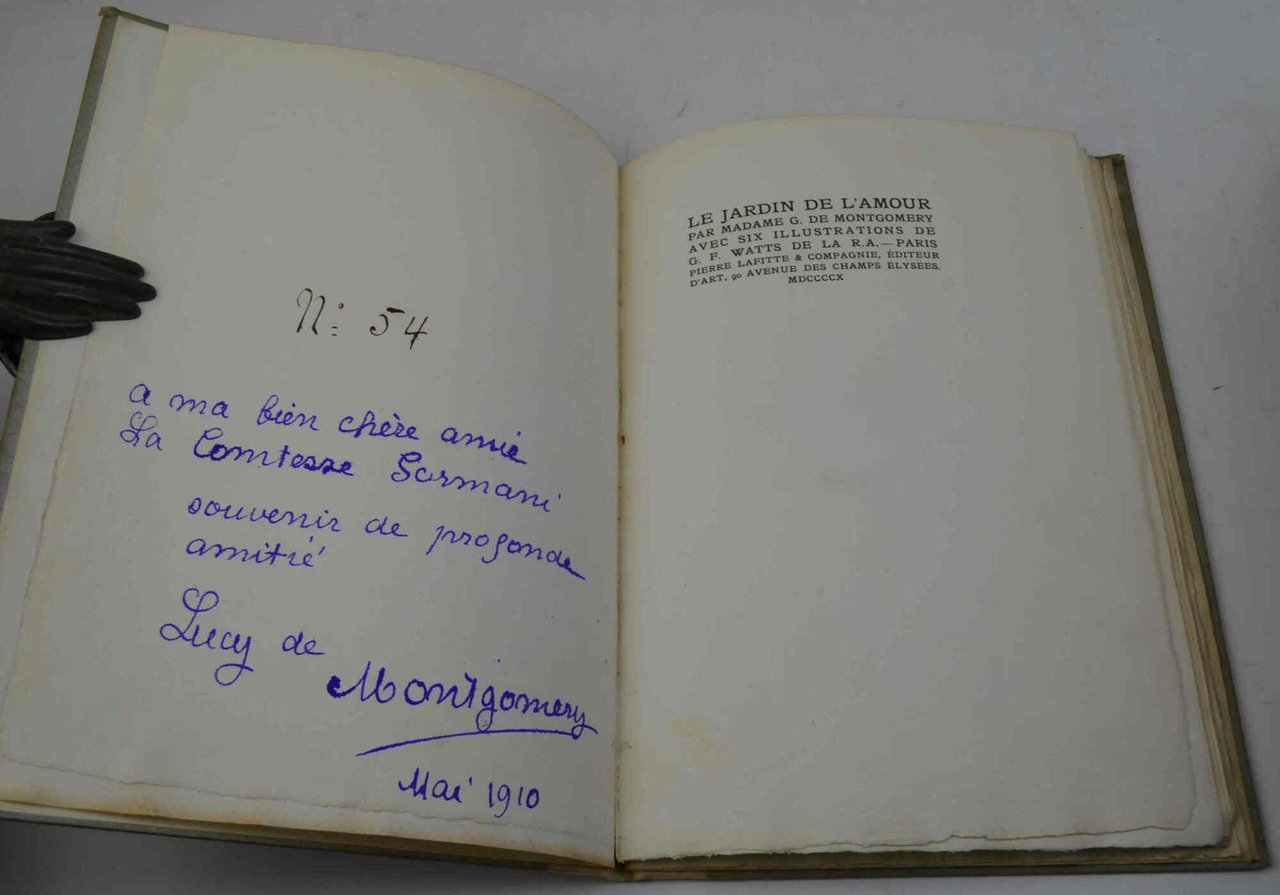 N: 54
a ma bien chère amie
La Comtesse Sormani
souvenir de profonde
amitié
Lucy de
Montgomery
Mai 1910
LE JARDIN DE L'AMOUR
PAR MADAME G. DE MONTGOMERY
AVEC SIX ILLUSTRATIONS DE
G. F. WATTS DE LA R.A. — PARIS
PIERRE LAFITTE & COMPAGNIE, ÉDITEUR
D'ART, 90 AVENUE DES CHAMPS ÉLYSÉES.
MDCCCCX